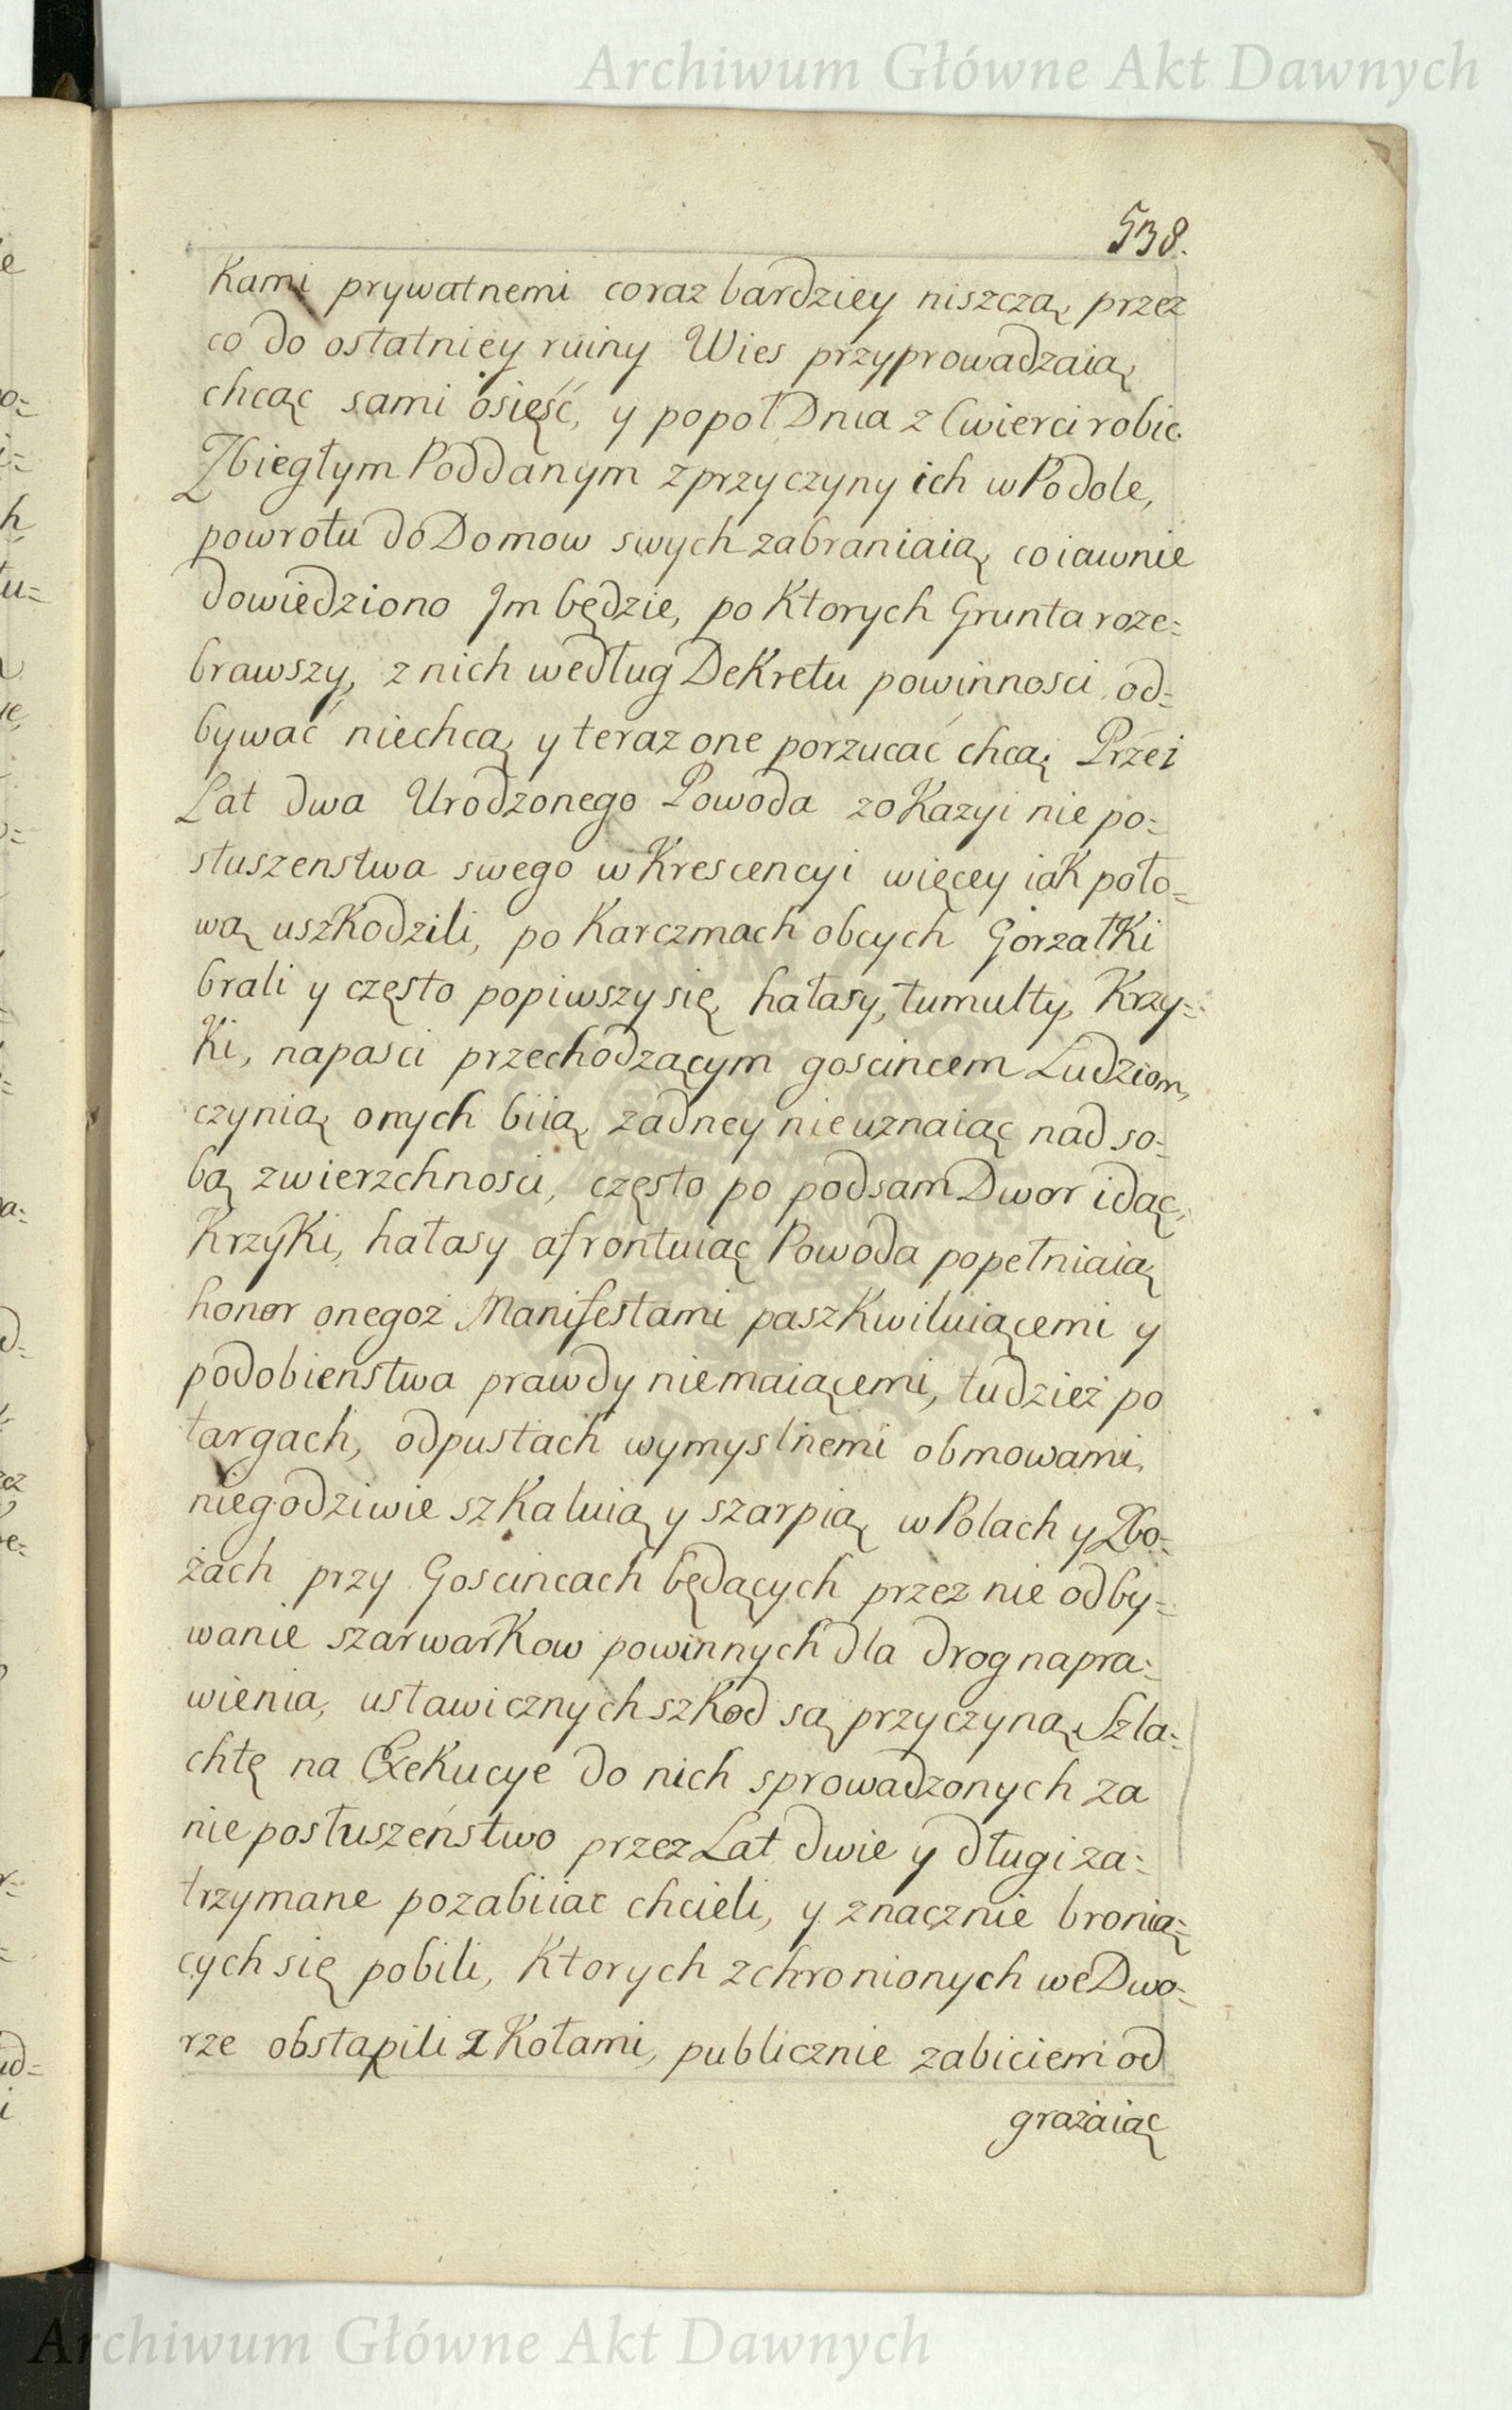 Archiwum Główne Akt Dawnych
538.
Kami prywatnemi coraz bardziey niszczą, przez
co do ostatniey ruiny Wies przyprowadzaią
chcąc sami osięść, y popoł Dnia z Cwierci robic.
Zbiegłym Poddanym zprzyczyny ich w Podole,
powrotu do Domow swych zabraniaią, co iawnie
dowiedziono Im będzie, po Ktorych Grunta roze=
brawszy, z nich według DeKretu powinnosci od=
bywać niechcą, y teraz one porzucać chcą; Przez
Lat dwa Urodzonego Powoda zoKazyi nie po=
słuszenstwa swego w Krescencyi więcey iaK poło=
wą uszKodzili, po Karczmach obcych GorzałKi
brali y często popiwszy się, hałasy, tumulty, Krzy=
Ki, napasci przechodzącym goscincem Ludziom,
czynią onych biią, zadney nieuznaiąc nad so=
bą zwierzchnosci, często po podsam Dwor idąc,
KrzyKi, hałasy afrontuiąc Powoda popełniaią
honor onegoż Manifestami paszKwiluiącemi y
podobieństwa prawdy niemaiącemi, tudzież po
targach, odpustach wymyslnemi obmowami,
niegodziwie szKaluią y szarpią, w Polach y Zbo=
żach przy Goscincach będących przez nie odby=
wanie szarwarKow powinnych dla drog napra=
wienia, ustawicznych szKod są przyczyną, Szla=
chtę na ExeKucye do nich sprowadzonych za
nieposłuszeństwo przez Lat dwie y długi za=
trzymane pozabiiac chcieli, y znacznie bronią=
cych się pobili, Ktorych zchronionych we Dwo=
rze obstąpili z Kołami, publicznie zabiciem od
grażaiąc
Archiwum Główne Akt Dawnych